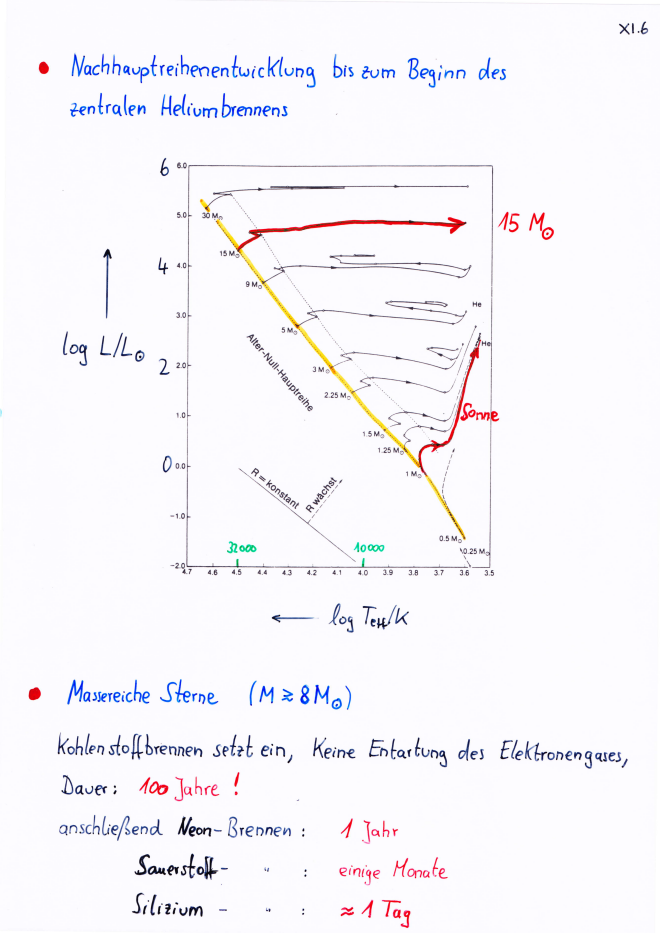 XI.6
• Nachhauptreihenentwicklung bis zum Beginn des
zentralen Heliumbrennens
6 6.0
5.0
4 4.0
3.0
2 2.0
1.0
0 0.0
-1.0
-2.0
log L/L☉
30 M☉
15 M☉
9 M☉
5 M☉
3 M☉
2.25 M☉
1.5 M☉
1.25 M☉
1 M☉
0.5 M☉
0.25 M☉
15 M☉
He
He
Sonne
Alter-Null-Hauptreihe
R = konstant
R wächst
32000 10000
4.7 4.6 4.5 4.4 4.3 4.2 4.1 4.0 3.9 3.8 3.7 3.6 3.5
← log Teff/K
• Massereiche Sterne (M ≳ 8 M☉)
Kohlenstoffbrennen setzt ein, Keine Entartung des Elektronengases,
Dauer: 100 Jahre !
anschließend Neon-Brennen : 1 Jahr
Sauerstoff- " : einige Monate
Silizium - " : ≈ 1 Tag